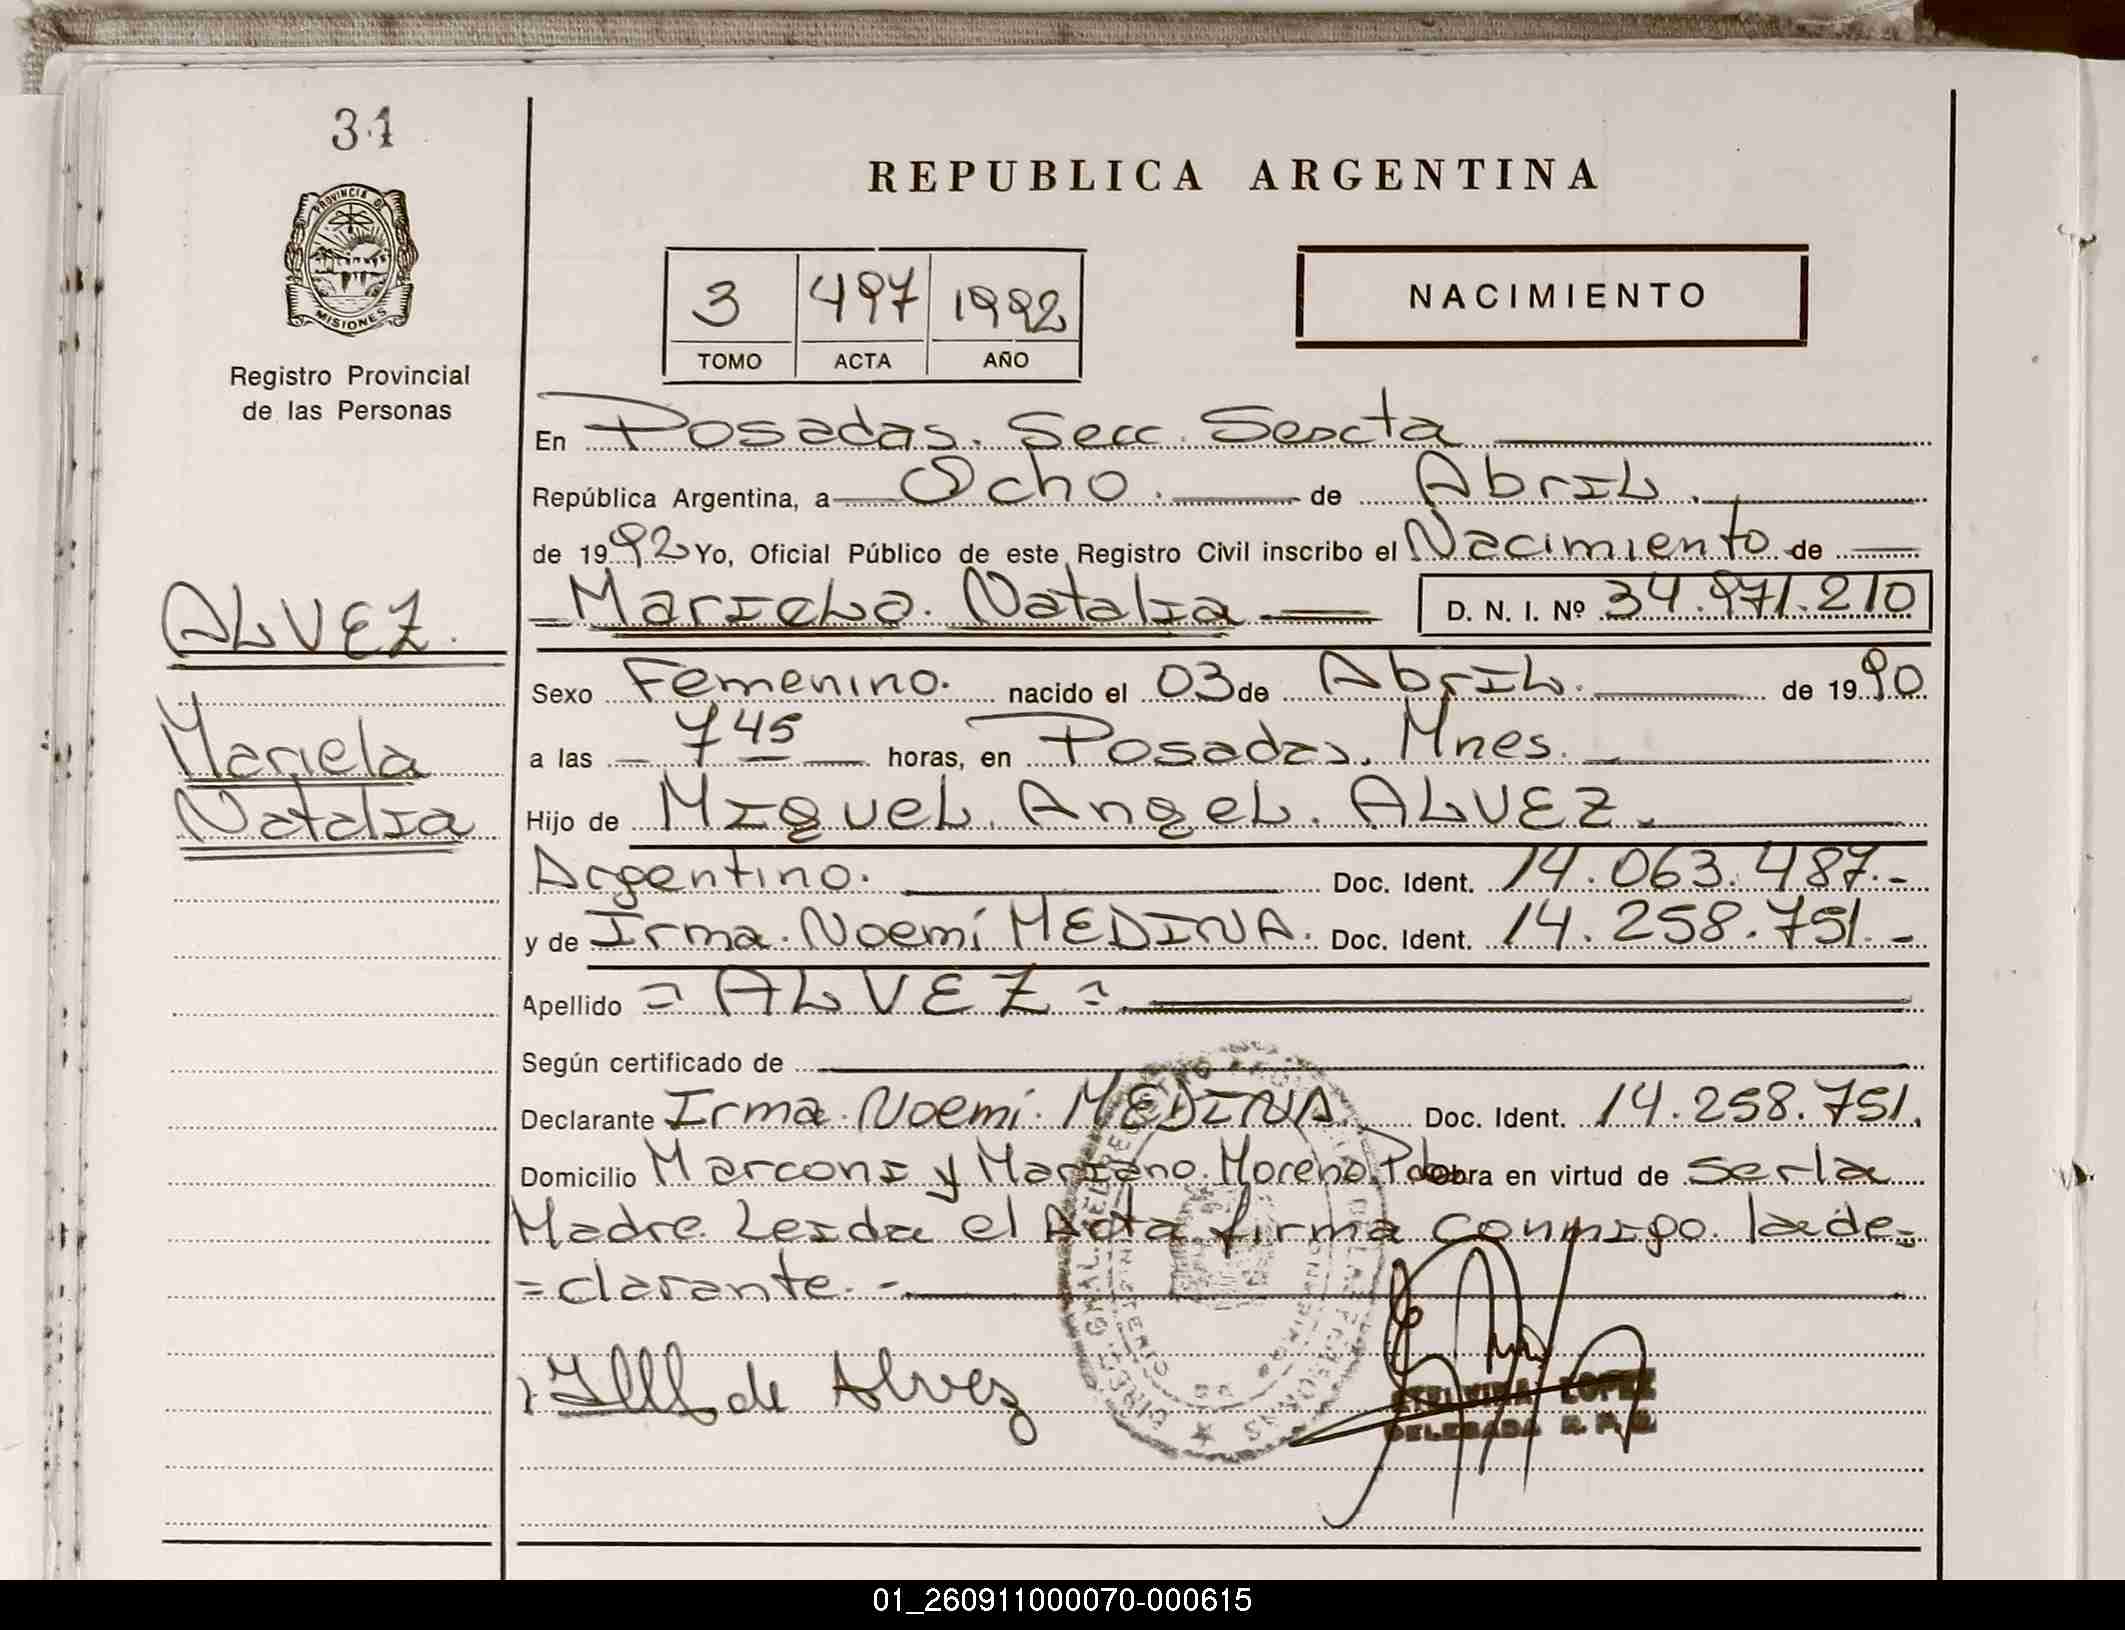 31
REPUBLICA ARGENTINA
PROVINCIA DE
MISIONES
Registro Provincial
de las Personas
3 497 1992
TOMO ACTA AÑO
NACIMIENTO
En Posadas. Secc. Sexcta
República Argentina, a Ocho. de Abril.
de 1992 Yo, Oficial Público de este Registro Civil inscribo el Nacimiento de
Mariela. Natalia D. N. I. Nº 34.971.210
ALVEZ.
Mariela
Natalia
Sexo Femenino. nacido el 03 de Abril. de 1990
a las 7 45 horas, en Posadas, Mnes.
Hijo de Miguel. Angel. ALVEZ.
Argentino. Doc. Ident. 14.063.487.-
y de Irma. Noemí MEDINA. Doc. Ident. 14.258.751.-
Apellido = ALVEZ =
Según certificado de
Declarante Irma. Noemí. MEDINA. Doc. Ident. 14.258.751.
Domicilio Marconi y Mariano. Moreno. Pdas obra en virtud de ser la
Madre. Leida el Acta firma conmigo. la de=
=clarante.-
de Alvez
LOPEZ
DELEGADA R. P.
01_260911000070-000615